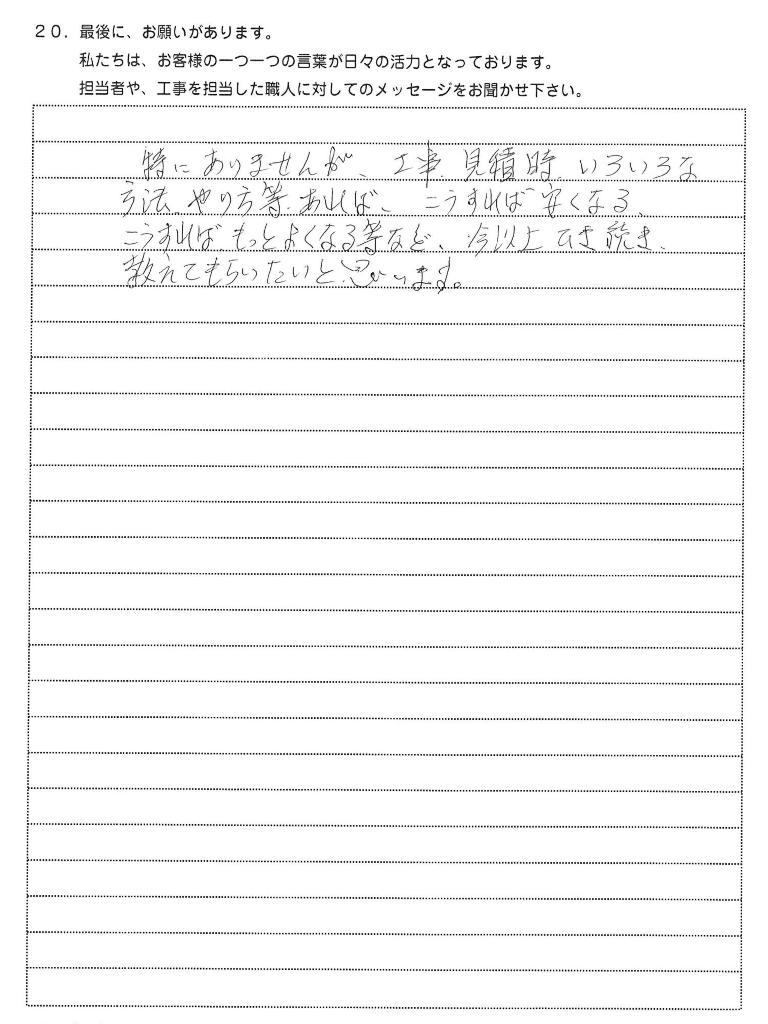 20．最後に、お願いがあります。
私たちは、お客様の一つ一つの言葉が日々の活力となっております。
担当者や、工事を担当した職人に対してのメッセージをお聞かせ下さい。
特にありませんが、工事、見積時、いろいろな
方法、やり方等、あれば、こうすれば安くなる、
こうすればもっとよくなる等など、今以上ひき続き、
教えてもらいたいと思います。